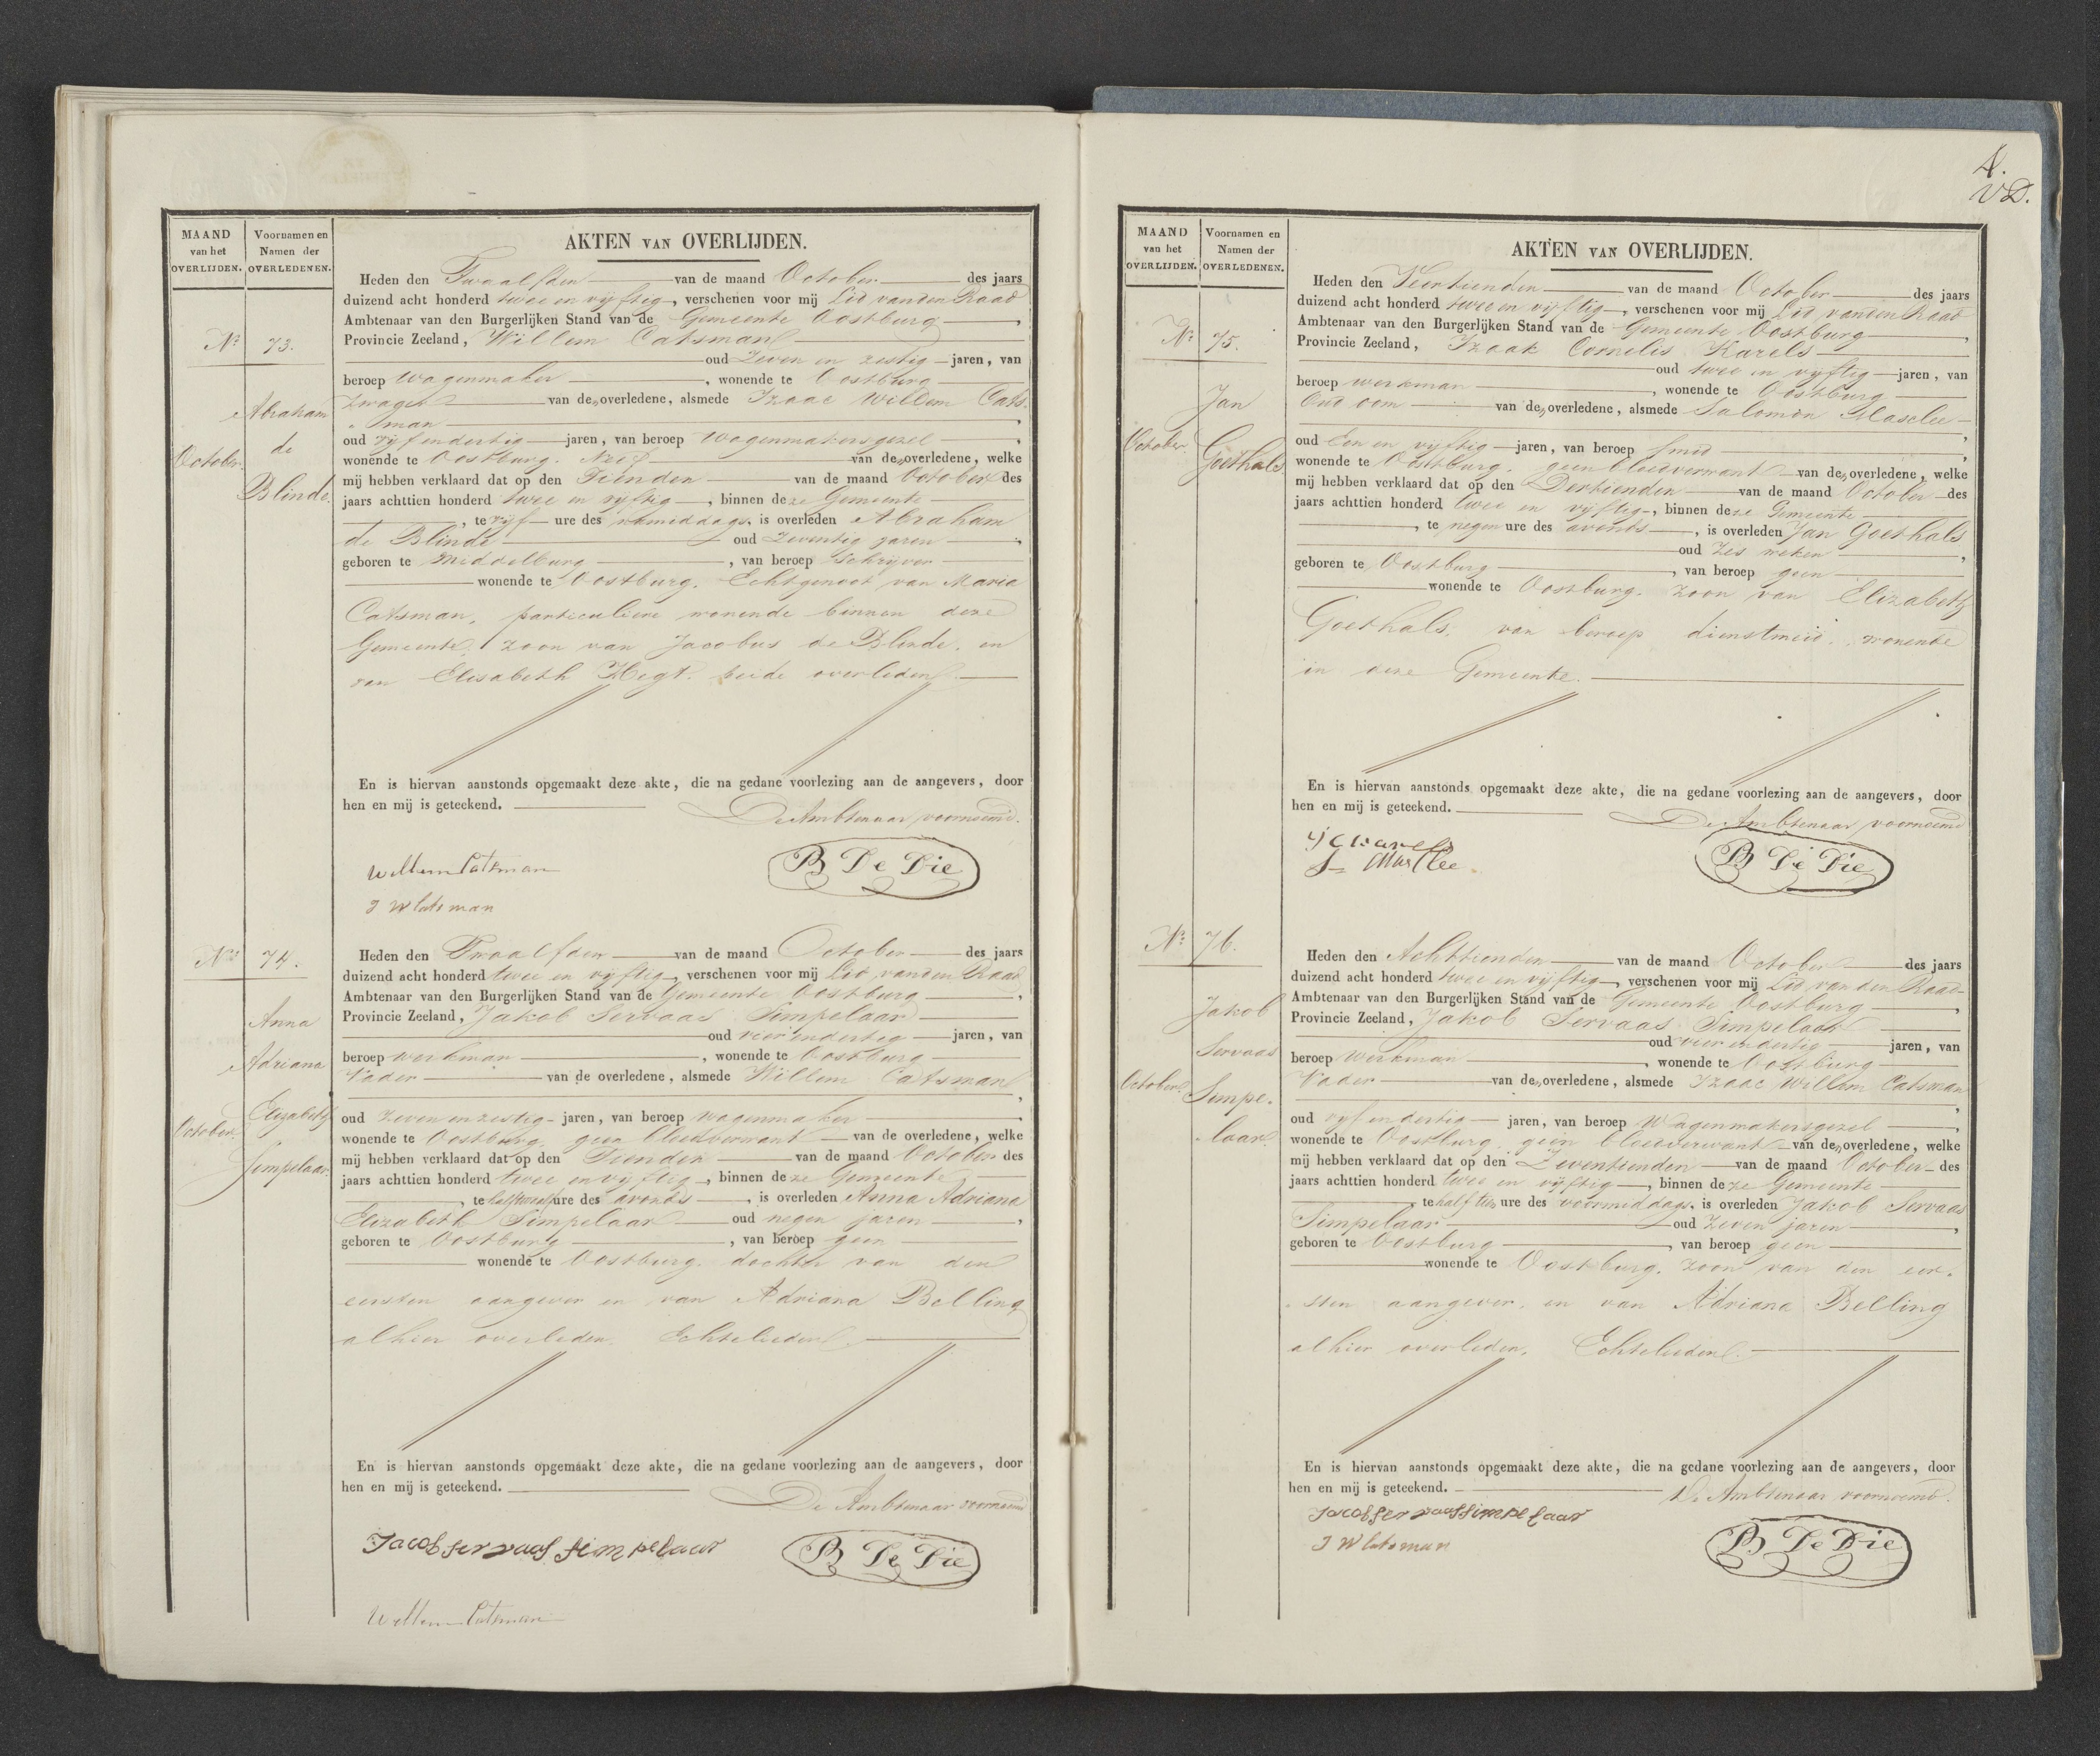 MAAND van het OVERLIJDEN.
Voornamen en Namen der OVERLEDENEN.
AKTEN VAN OVERLIJDEN.
No 73.
October.
Abraham
de
Blinde.
Heden den Twaalfden van de maand October des jaars
duizend acht honderd twee en vijftig, verschenen voor mij Lid van den Raad
Ambtenaar van den Burgerlijken Stand van de Gemeente Oostburg,
Provincie Zeeland, Willem Catsman
oud Zeven en zestig jaren, van
beroep wagenmaker, wonende te Oostburg
Zwager van den overledene, alsmede Izaac Willem Cats-
man,
oud vijf en dertig jaren, van beroep wagenmakersgezel,
wonende te Oostburg. Neef van den overledene, welke
mij hebben verklaard dat op den Tienden van de maand October des
jaars achttien honderd twee en vijftig, binnen deze Gemeente
, te vijf ure des namiddags, is overleden Abraham
de Blinde oud Zeventig jaren,
geboren te Middelburg, van beroep Schrijver
wonende te Oostburg. Echtgenoot van Maria
Catsman, particuliere wonende binnen deze
Gemeente, zoon van Jacobus de Blinde, en
van Elisabeth Hegt. beide overleden.
En is hiervan aanstonds opgemaakt deze akte, die na gedane voorlezing aan de aangevers, door
hen en mij is geteekend. De Ambtenaar voornoemd.
Willem Catsman
B De Die
I W Catsman
No 74.
October.
Anna
Adriana
Elizabeth
Simpelaar.
Heden den Twaalfden van de maand October des jaars
duizend acht honderd twee en vijftig, verschenen voor mij Lid van den Raad
Ambtenaar van den Burgerlijken Stand van de Gemeente Oostburg,
Provincie Zeeland, Jakob Servaas Simpelaar
oud vier en dertig jaren, van
beroep werkman, wonende te Oostburg
Vader van de overledene, alsmede Willem Catsman
,
oud zeven en zestig jaren, van beroep wagenmaker,
wonende te Oostburg, geen bloedverwant van de overledene, welke
mij hebben verklaard dat op den Tienden van de maand October des
jaars achttien honderd twee en vijftig, binnen deze Gemeente
, te half twaalf ure des avonds, is overleden Anna Adriana
Elizabeth Simpelaar oud negen jaren,
geboren te Oostburg, van beroep geen
wonende te Oostburg. dochter van den
eersten aangever en van Adriana Belling
alhier overleden. Echtelieden.
En is hiervan aanstonds opgemaakt deze akte, die na gedane voorlezing aan de aangevers, door
hen en mij is geteekend. De Ambtenaar voornoemd
Jacob servaas simpelaar
B De Die
Willem Catsman
4.
VD.
MAAND van het OVERLIJDEN.
Voornamen en Namen der OVERLEDENEN.
AKTEN VAN OVERLIJDEN.
No 75.
October.
Jan
Goethals
Heden den Veertienden van de maand October des jaars
duizend acht honderd twee en vijftig, verschenen voor mij Lid van den Raad
Ambtenaar van den Burgerlijken Stand van de Gemeente Oostburg,
Provincie Zeeland, Izaak Cornelis Karels
oud twee en vijftig jaren, van
beroep werkman, wonende te Oostburg
Oud oom van den overledene, alsmede Salomon Masclee
,
oud Een en vijftig jaren, van beroep Smid,
wonende te Oostburg. geen bloedverwant van den overledene, welke
mij hebben verklaard dat op den Dertienden van de maand October des
jaars achttien honderd twee en vijftig, binnen deze Gemeente
, te negen ure des avonds, is overleden Jan Goethals
oud Zes weken,
geboren te Oostburg, van beroep geen
wonende te Oostburg. zoon van Elizabeth
Goethals, van beroep dienstmeid, wonende
in deze Gemeente.
En is hiervan aanstonds opgemaakt deze akte, die na gedane voorlezing aan de aangevers, door
hen en mij is geteekend. De Ambtenaar voornoemd
B De Die
No 76.
October.
Jakob
Servaas
Simpe-
laar.
Heden den Achttienden van de maand October des jaars
duizend acht honderd twee en vijftig, verschenen voor mij Lid van den Raad
Ambtenaar van den Burgerlijken Stand van de Gemeente Oostburg,
Provincie Zeeland, Jakob Servaas Simpelaar
oud vier en dertig jaren, van
beroep werkman, wonende te Oostburg
Vader van den overledene, alsmede Izaac Willem Catsman
,
oud vijf en dertig jaren, van beroep Wagenmakersgezel,
wonende te Oostburg, geen bloedverwant van den overledene, welke
mij hebben verklaard dat op den Zeventienden van de maand October des
jaars achttien honderd twee en vijftig, binnen deze Gemeente
te half tien ure des voormiddags, is overleden Jakob Servaas
Simpelaar oud Zeven jaren,
geboren te Oostburg, van beroep geen
wonende te Oostburg. zoon van den eer-
sten aangever, en van Adriana Belling
alhier overleden, Echtelieden.
En is hiervan aanstonds opgemaakt deze akte, die na gedane voorlezing aan de aangevers, door
hen en mij is geteekend. De Ambtenaar voornoemd.
Jacob servaas simpelaar
I W Catsman
B De Die